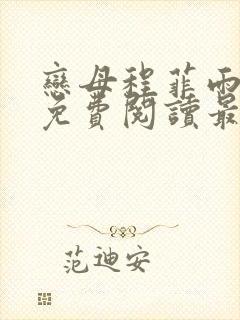 戀母程菲雨
免費閱讀最
范迪安